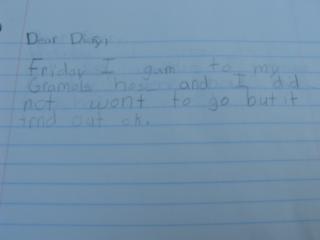 Dear Diary,
Friday I gum to my
Gramols hos and I did
not wont to go but it
trnd out ok.